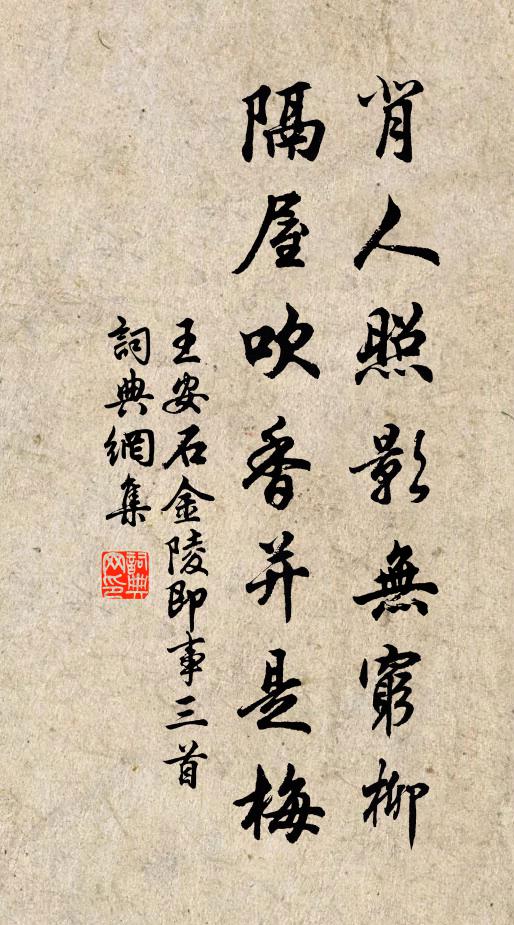 背人照影無窮柳
隔屋吹香并是梅
王安石金陵即事三首
詞典網集
詞典网印